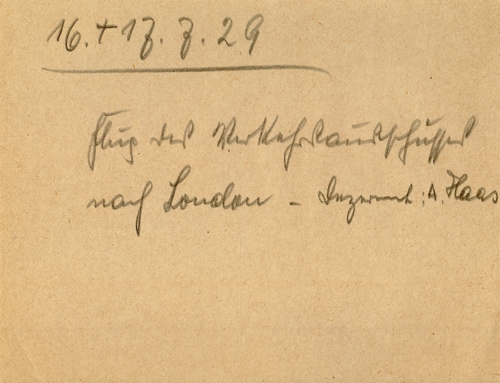 16. + 17. 7. 29
Flug des Verkehrsausschusses
nach London – Dezernent: A. Haas